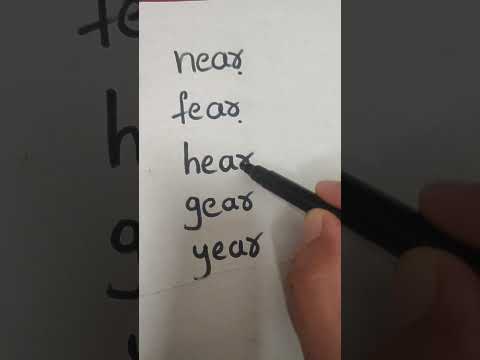 near
fear
hear
gear
year